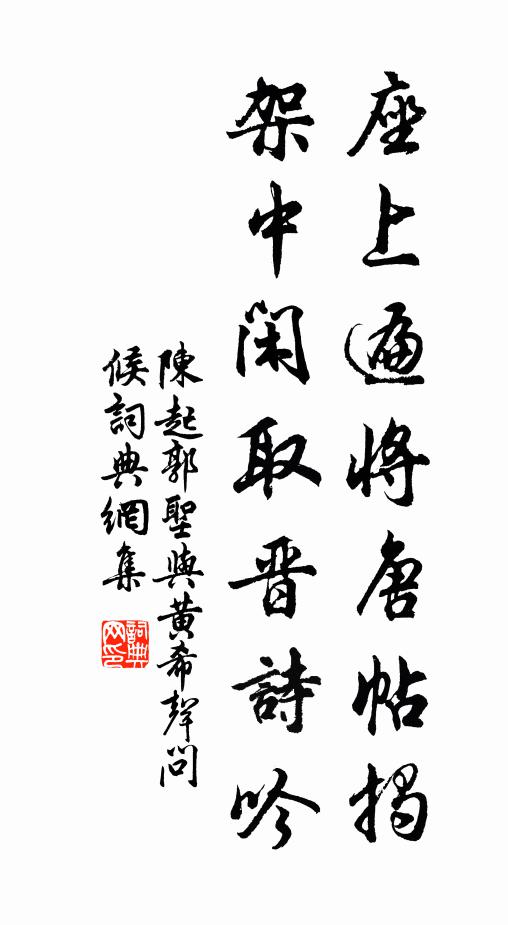 座上遍將唐帖揭
架中閑取晋詩吟
陳起郭聖與黃希聲問
候詞典網集
詞典网印